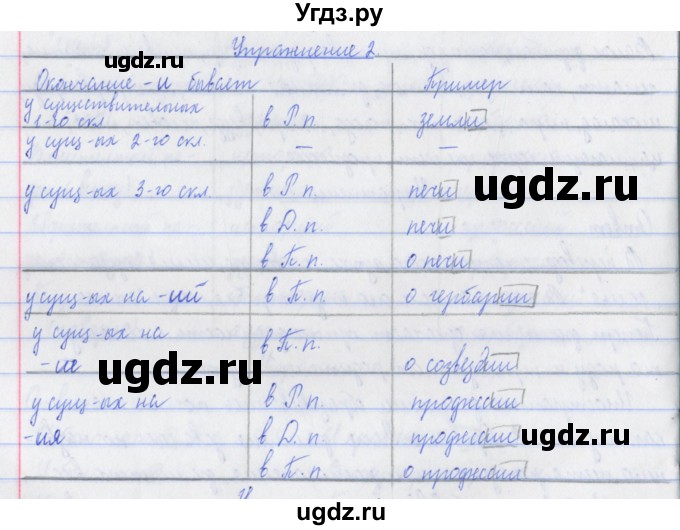 Угдз.ру
Упражнение 2.
Окончание -и бывает Пример
у существительных
1-го скл. в Р.п. земли
у сущ-ых 2-го скл. — —
у сущ-ых 3-го скл. в Р.п. печи
в Д.п. печи
в П.п. о печи
у сущ-ых на -ий в П.п. о гербарии
у сущ-ых на в П.п.
-ие о созвездии
у сущ-ых на в Р.п.
-ия в Д.п.
в П.п.
ugdz.ru
ugdz.ru
ugdz.ru
ugdz.ru
ugdz.ru